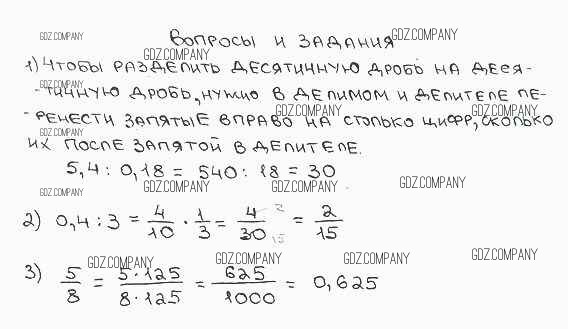 GDZ.COMPANY Вопросы и задания GDZ.COMPANY
GDZ.COMPANY
1) Чтобы разделить десятичную дробь на деся-
GDZ.COMPANY
-тичную дробь, нужно в делимом и делителе пе-
GDZ.COMPANY GDZ.COMPANY
-ренести запятые вправо на столько цифр, сколько
GDZ.COMPANY
их после запятой в делителе.
5,4 : 0,18 = 540 : 18 = 30
GDZ.COMPANY GDZ.COMPANY GDZ.COMPANY GDZ.COMPANY
2) 0,4 : 3 = 4/10 · 1/3 = 4/30 2 15 = 2/15
GDZ.COMPANY GDZ.COMPANY GDZ.COMPANY GDZ.COMPANY
3) 5/8 = 5·125/8·125 = 625/1000 = 0,625